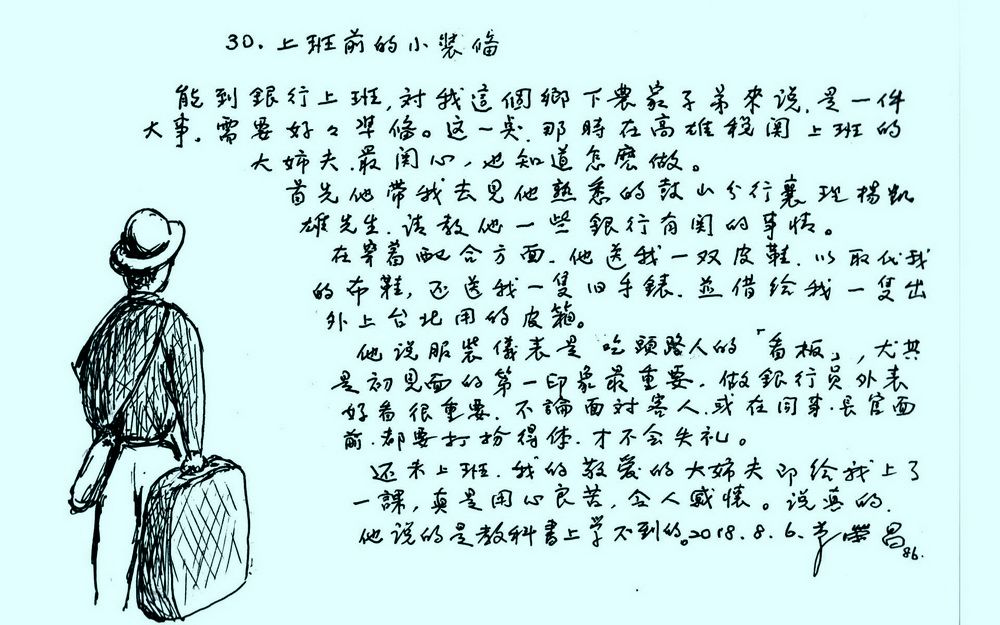 30. 上班前的小裝俻
能到銀行上班,对我這個鄉下農家子弟來说,是一件
大事,需要好々準俻。这一点,那時在高雄税関上班的
大姉夫,最関心,也知道怎麽做。
首先他帶我去見他熟悉的鼓山分行襄理楊凱
雄先生,请教他一些銀行有関的事情。
在穿着配合方面,他送我一双皮鞋,以取代我
的布鞋,还送我一隻旧手錶,並借给我一隻出
外上台北用的皮箱。
他说服裝儀表是吃頭路人的「看板」,尤其
是初見面的第一印象最重要,做銀行员外表
好看很重要,不論面対客人,或在同事、長官面
前,都要打扮得体,才不会失礼。
还未上班,我的敬爱的大姉夫即给我上了
一課,真是用心良苦,令人感懐。说真的,
他说的是教科書上学不到的。2018.8.6.李榮昌86.